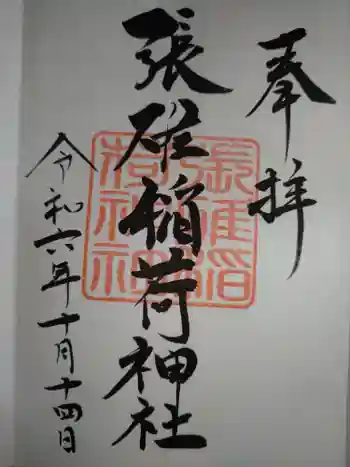 奉拝
張碓稲荷神社
令和六年十月十四日
張碓稲荷神社